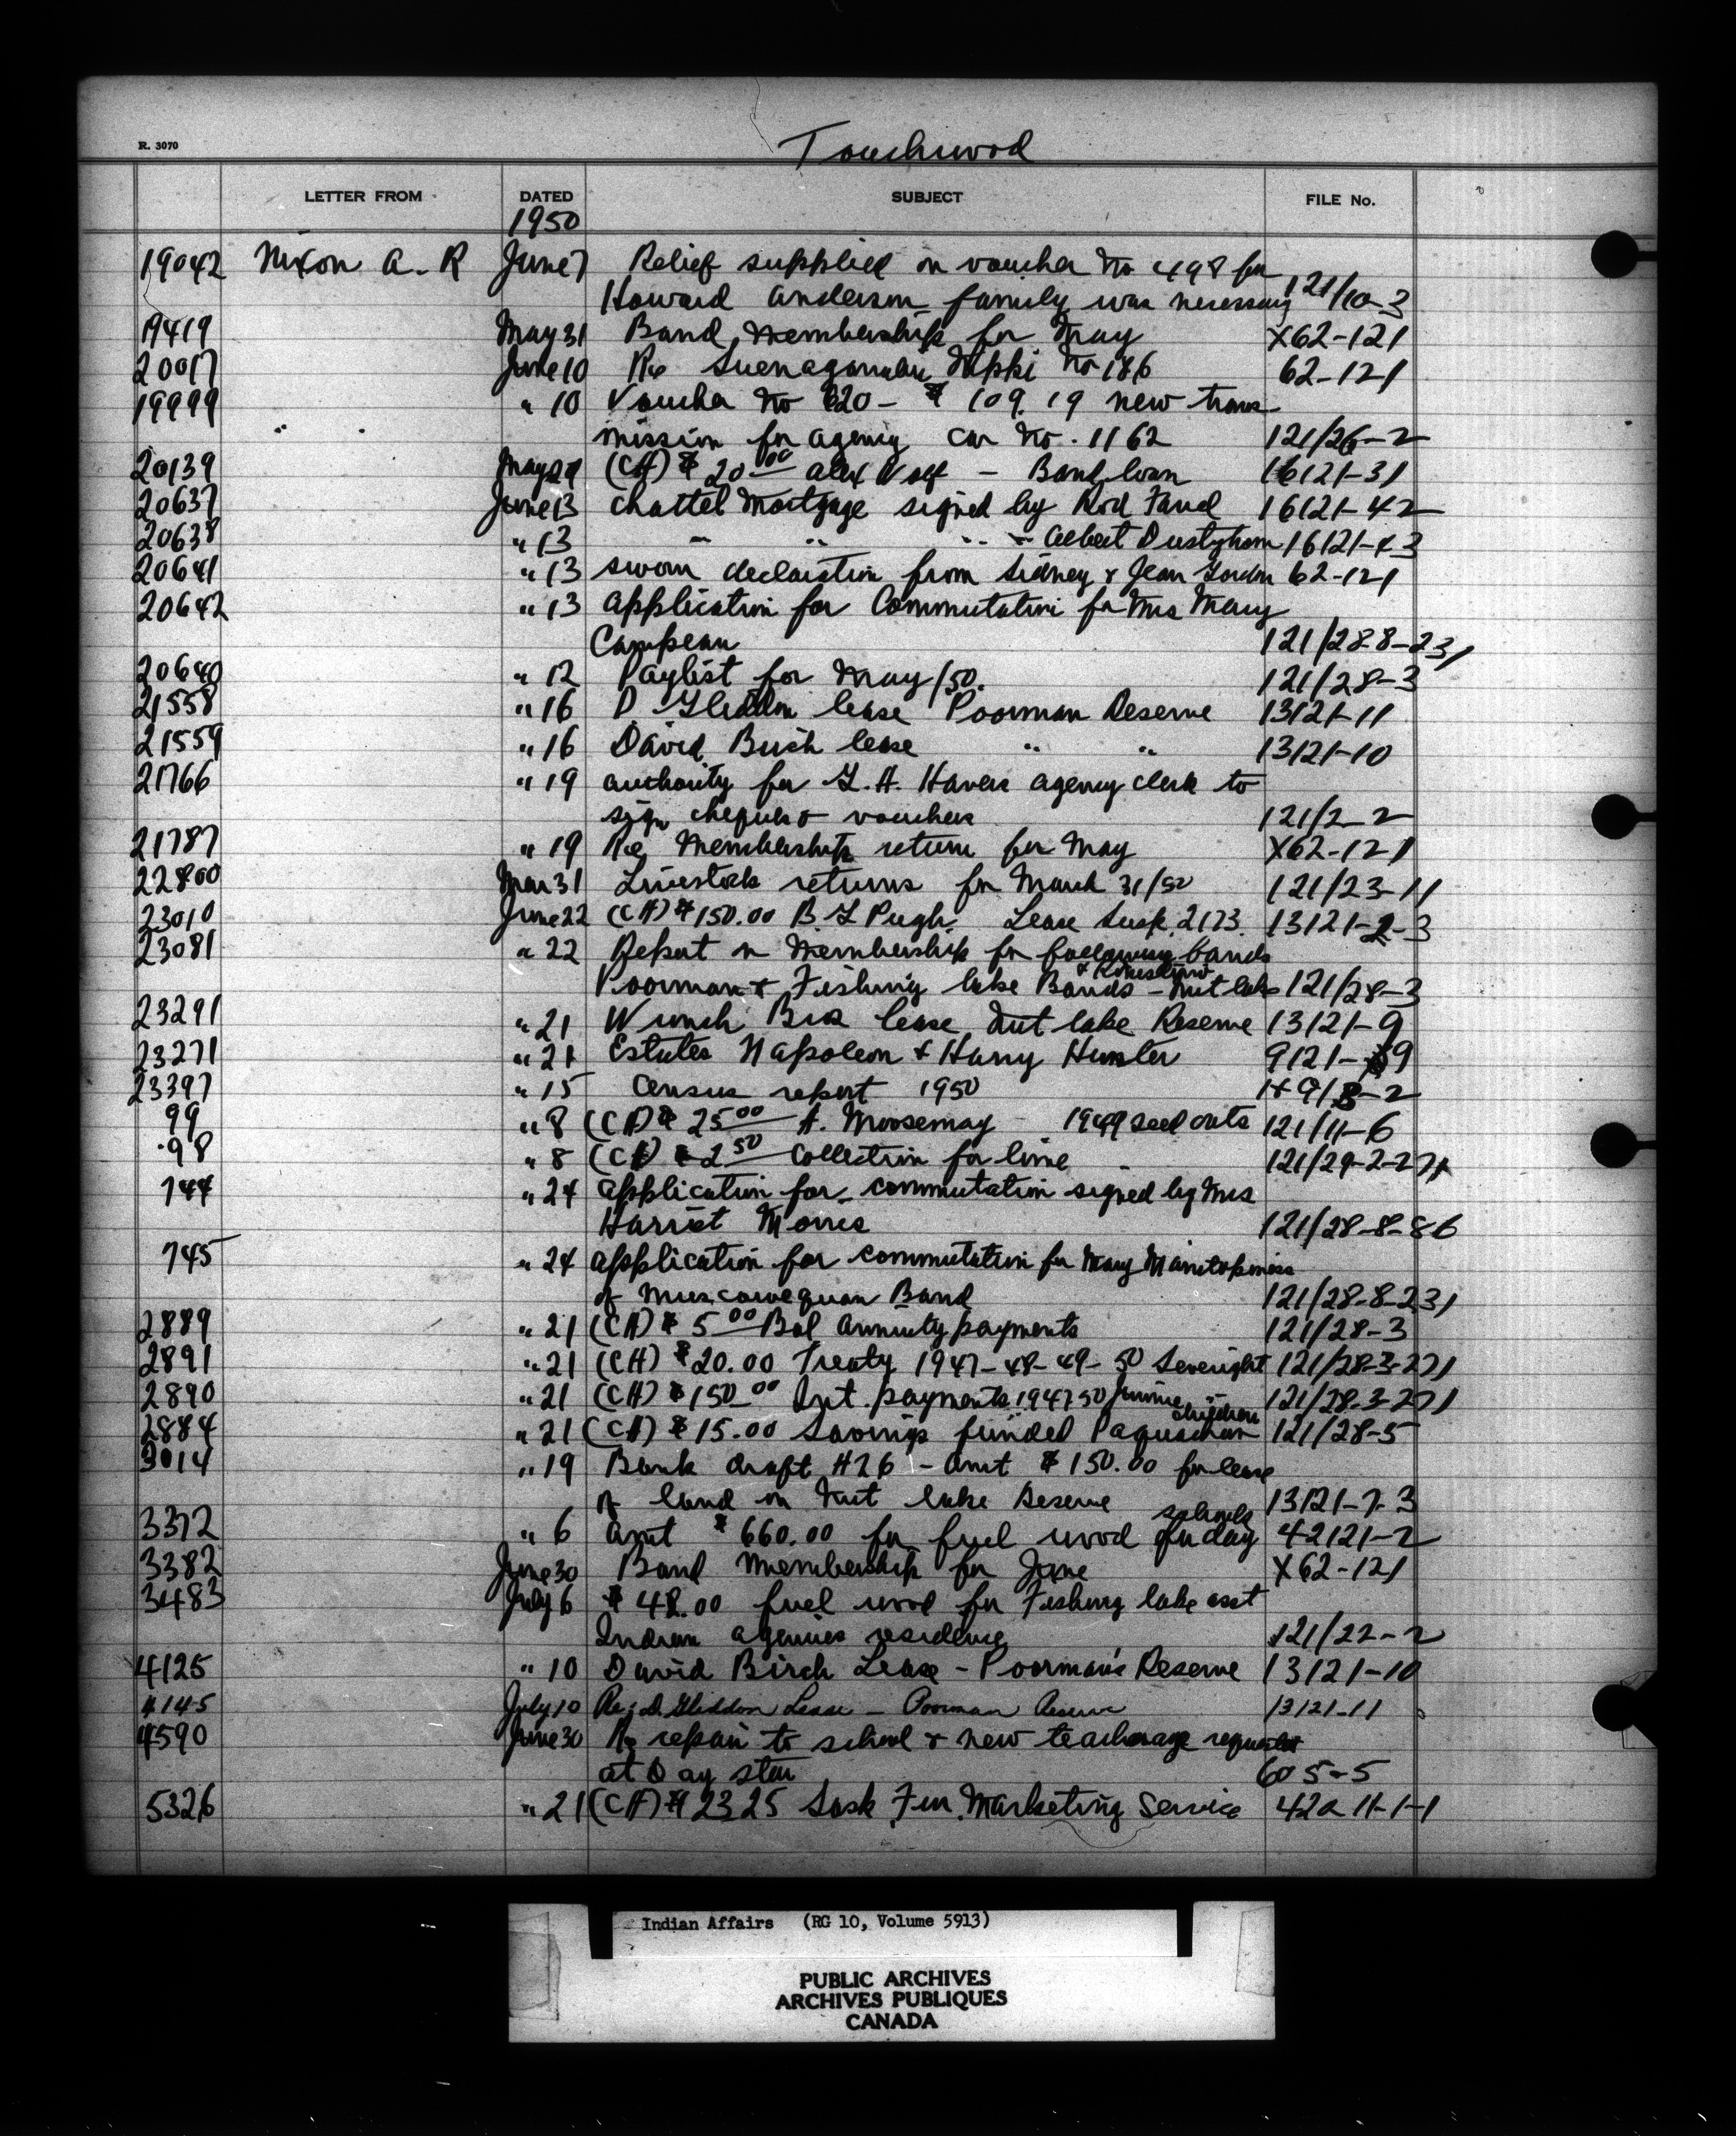 R. 3070
Touchwood
LETTER FROM DATED SUBJECT FILE No.
1950
19042 Nixon A. R June 7 Relief supplied on voucher No 498 for
Howard Anderson family was necessary 121/10-3
19419 May 31 Band Membership for May X62-121
20017 June 10 Re No 186 62-121
19999 " 10 Voucher No 820 - $ 109.19 new trans-
" " mission for agency car No. 1162 121/26-2
20139 May (CH) $ 20.00 Alex - Band loan 16121-31
20637 June 13 Chattel Mortgage signed by Rod Favel 16121-42
20638 " 13 " " " " Albert Dustyhorn 16121-43
20641 " 13 sworn declaration from Sidney & Jean Gordon 62-121
20642 " 13 Application for Commutation for Mrs Mary
Campeau 121/28-8-231
20640 " 12 Paylist for May/50. 121/28-3
21558 " 16 D Gleddon lease Poorman Reserve 13121-11
21559 " 16 David Birch lease " " 13121-10
21766 " 19 authority for agency clerk to
sign cheques & vouchers 121/2-2
21787 " 19 Re Membership return for May X62-121
22800 Mar 31 Livestock returns for March 31/50 121/23-11
23010 June 22 (CH) $150.00 B. Pugh. Lease Sask. 2173. 13121-2-3
23081 " 22 Report on Membership for following bands
Poorman & Fishing lake Bands - Nut lake 121/28-3
23291 " 21 Wunch Bros lease Nut lake Reserve 13121-9
23271 " 21 Estates Napoleon & Harry Hunter 9121-
23397 " 15 Census report 1950
99 " 8 (CH) $ 25.00 A. Moosemay - 1949 seed oats 121/11-6
98 " 8 (CH) $ 2.50 Collection for lime 121/29-2-271
744 " 24 Application for commutation signed by Mrs
Harriet Morris 121/28-8-86
745 " 24 Application for commutation for Mary
of Muscowequan Band 121/28-8-231
2889 " 21 (CH) $ 5.00 Bal Annuity payments 121/28-3
2891 " 21 (CH) $20.00 Treaty 1947-48-49-50 Severight 121/28-3-271
2890 " 21 (CH) $150.00 Int. payments 1947-50 121/28-3-271
children
2884 " 21 (CH) $15.00 Savings funded 121/28-5
3014 " 19 Bank draft #26 - amt $150.00 for lease
of land on Nut lake Reserve 13121-7-3
schools
3372 " 6 amt $ 660.00 for fuel wood for day 42121-2
3382 June 30 Band Membership for June X62-121
3483 July 6 $ 48.00 fuel wood for Fishing lake asst
Indian agencies residence 121/22-2
4125 " 10 David Birch Lease - Poorman's Reserve 13121-10
4145 July 10 Re: D. Gleddon Lease - Poorman Reserve 13121-11
4590 June 30 Re repair to school & new teacherage requested
at Day Star 605-5
5326 " 21 (CH) Sask Fur Marketing Service 420-11-1-1
Indian Affairs (RG 10, Volume 5913)
PUBLIC ARCHIVES
ARCHIVES PUBLIQUES
CANADA